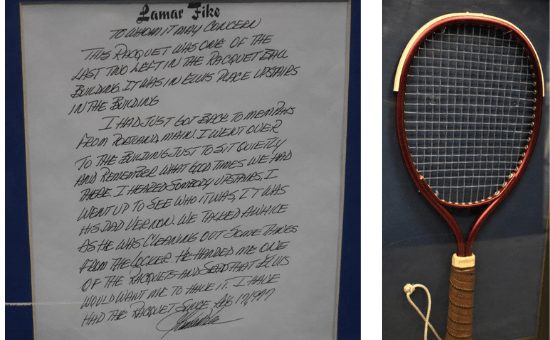 Lamar Fike
TO WHOM IT MAY CONCERN
THIS RACQUET WAS ONE OF THE
LAST TWO LEFT IN THE RACQUET BALL
BUILDING. IT WAS IN ELVIS PLACE UPSTAIRS
IN THE BUILDING
I HAD JUST GOT BACK TO MEMPHIS
FROM PORTLAND, MAIN I WENT OVER
TO THE BUILDING JUST TO SIT QUIETLY
AND REMEMBER WHAT GOOD TIMES WE HAD
THERE. I HEARED SOMEBODY UPSTAIRS. I
WENT UP TO SEE WHO IT WAS, IT WAS
HIS DAD VERNON. WE TALKED AWHILE
AS HE WAS CLEANING OUT SOME THINGS
FROM THE LOCKER HE HANDED ME ONE
OF THE RACQUETS AND SAID THAT ELVIS
WOULD WANT ME TO HAVE IT. I HAVE
HAD THE RACQUET SINCE